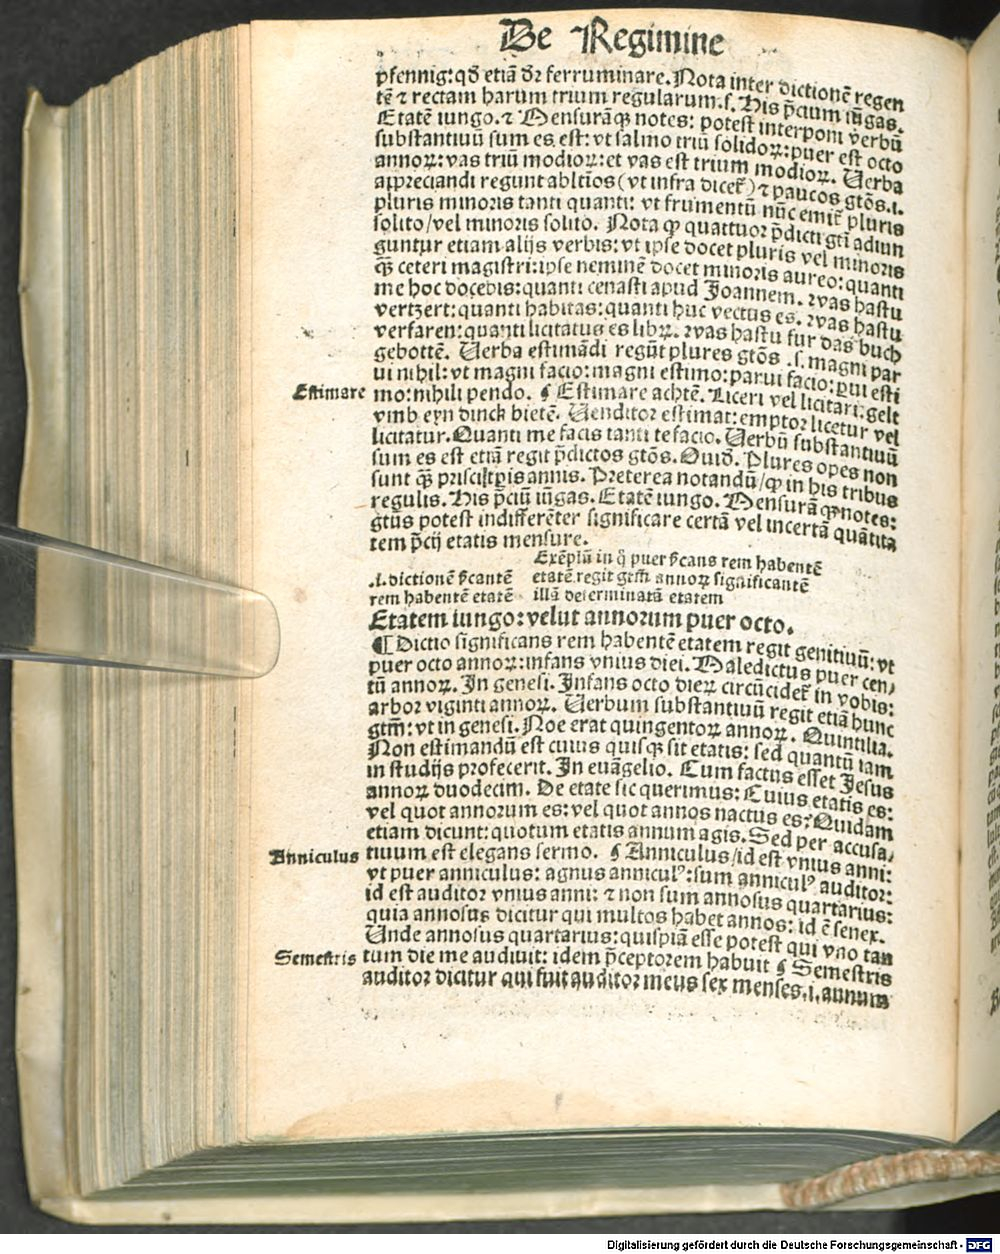 De Regimine
pfennig: qd̄ etiā dr̄ ferruminare. Nota inter dictionē regen
tē ⁊ rectam harum trium regularum .s. His p̄cium iūgas.
Etatē iungo. ⁊ Mensurāqꝫ notes: potest interponi verbū
substantiuū sum es est: vt salmo triū solidoꝝ: puer est octo
annoꝝ: vas triū modioꝝ: et vas est trium modioꝝ. Uerba
appreciandi regunt abltīos (vt infra dicet̄) ⁊ paucos gtōs .i.
pluris minoris tanti quanti: vt frumentū nūc emit̄ pluris
solito/ vel minoris solito. Nota ꝙ quattuor p̄dicti gtī adiun
guntur etiam alijs verbis: vt ipse docet pluris vel minoris
qꝫ̄ ceteri magistri: ipse neminē docet minoris aureo: quanti
me hoc docebis: quanti cenasti apud Joannem. was hastu
vertzert: quanti habitas: quanti huc vectus es. was hastu
verfaren: quanti licitatus es libꝝ. was hastu fur das buch
gebottē. Uerba estimādi regūt plures gtōs .s. magni par
ui nihil: vt magni facio: magni estimo: parui facio: pui esti
Estimare mo: nihili pendo. ¶ Estimare achtē. Liceri vel licitari. gelt
vmb eyn dinck bietē. Uenditor estimat: emptor licetur vel
licitatur. Quanti me facis tanti te facio. Uerbū substantiuū
sum es est etiā regit p̄dictos gtōs. Ouid. Plures opes non
sunt qꝫ̄ priscis annis. Preterea notandū/ ꝙ in his tribus
regulis. His p̄ciū iūgas. Etatē iungo. Mensurā qꝫ notes:
gtūs potest indifferēter significare certā vel incertā quātita
tem p̄cij etatis mensure.
Exēplū in q̄ puer s̄cans rem habentē
.i. dictionē s̄cantē etatē regit gtm̄ annoꝝ significantē
rem habentē etatē illā determinatā etatem
Etatem iungo: velut annorum puer octo.
¶ Dictio significans rem habentē etatem regit genitiuū: vt
puer octo annoꝝ: infans vnius diei. Maledictus puer cen/
tū annoꝝ. In genesi. Infans octo dieꝝ circūcidet̄ in vobis:
arbor viginti annoꝝ. Uerbum substantiuū regit etiā hunc
gtm̄: vt in genesi. Noe erat quingentoꝝ annoꝝ. Quintilia.
Non estimandū est cuius quisqꝫ sit etatis: sed quantū iam
in studijs profecerit. In euāgelio. Cum factus esset Jesus
annoꝝ duodecim. De etate sic querimus: Cuius etatis es:
vel quot annorum es: vel quot annos nactus es? Quidam
etiam dicunt: quotum etatis annum agis. Sed per accusa/
Anniculus tiuum est elegans sermo. ¶ Anniculus/ id est vnius anni:
vt puer anniculus: agnus anniculꝰ: sum anniculꝰ auditor:
id est auditor vnius anni: ⁊ non sum annosus quartarius:
quia annosus dicitur qui multos habet annos: id ē senex.
Unde annosus quartarius: quispiā esse potest qui vno tan
Semestris tum die me audiuit: idem p̄ceptorem habuit ¶ Semestris
auditor dicitur qui fuit auditor meus sex menses .i. annum
Digitalisierung gefördert durch die Deutsche Forschungsgemeinschaft - DFG